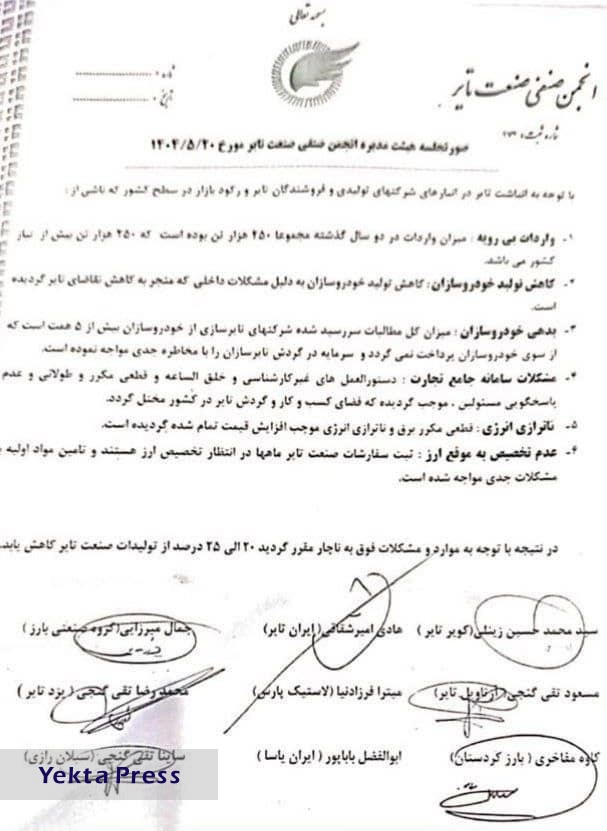 بسمه تعالی
انجمن صنفی صنعت تایر
شماره :
تاریخ :
شماره ثبت :
صورتجلسه هیئت مدیره انجمن صنفی صنعت تایر مورخ ۱۴۰۴/۵/۲۰
با توجه به انباشت تایر در انبارهای شرکتهای تولیدی و فروشندگان تایر و رکود بازار در سطح کشور که ناشی از :
۱- واردات بی رویه : میزان واردات در دو سال گذشته مجموعا ۴۵۰ هزار تن بوده است که ۲۵۰ هزار تن بیش از نیاز
کشور می باشد.
۲- کاهش تولید خودروسازان : کاهش تولید خودروسازان به دلیل مشکلات داخلی که منجر به کاهش تقاضای تایر گردیده
است.
۳- بدهی خودروسازان : میزان کل مطالبات سررسید شده شرکتهای تایرسازی از خودروسازان بیش از ۵ همت است که
از سوی خودروسازان پرداخت نمی گردد و سرمایه در گردش تایرسازان را با مخاطره جدی مواجه نموده است.
۴- مشکلات سامانه جامع تجارت : دستورالعمل های غیرکارشناسی و خلق الساعه و قطعی مکرر و طولانی و عدم
پاسخگویی مسئولین ، موجب گردیده که فضای کسب و کار و گردش تایر در کشور مختل گردد.
۵- ناترازی انرژی : قطعی مکرر برق و ناترازی انرژی موجب افزایش قیمت تمام شده گردیده است.
۶- عدم تخصیص به موقع ارز : ثبت سفارشات صنعت تایر ماهها در انتظار تخصیص ارز هستند و تامین مواد اولیه
مشکلات جدی مواجه شده است.
در نتیجه با توجه به موارد و مشکلات فوق به ناچار مقرر گردید ۲۰ الی ۲۵ درصد از تولیدات صنعت تایر کاهش یابد.
سید محمد حسین زینلی( کویر تایر ) هادی امیرشقاقی( ایران تایر) جمال میرزایی(گروه صنعتی بارز )
مسعود تقی گنجی( آرتاویل تایر) میترا فرزادنیا (لاستیک پارس) محمد رضا تقی گنجی ( یزد تایر )
کاوه مفاخری ( بارز کردستان) ابوالفضل باباپور ( ایران یاسا ) ساینا تقی گنجی (سبلان رازی)
Yekta Press